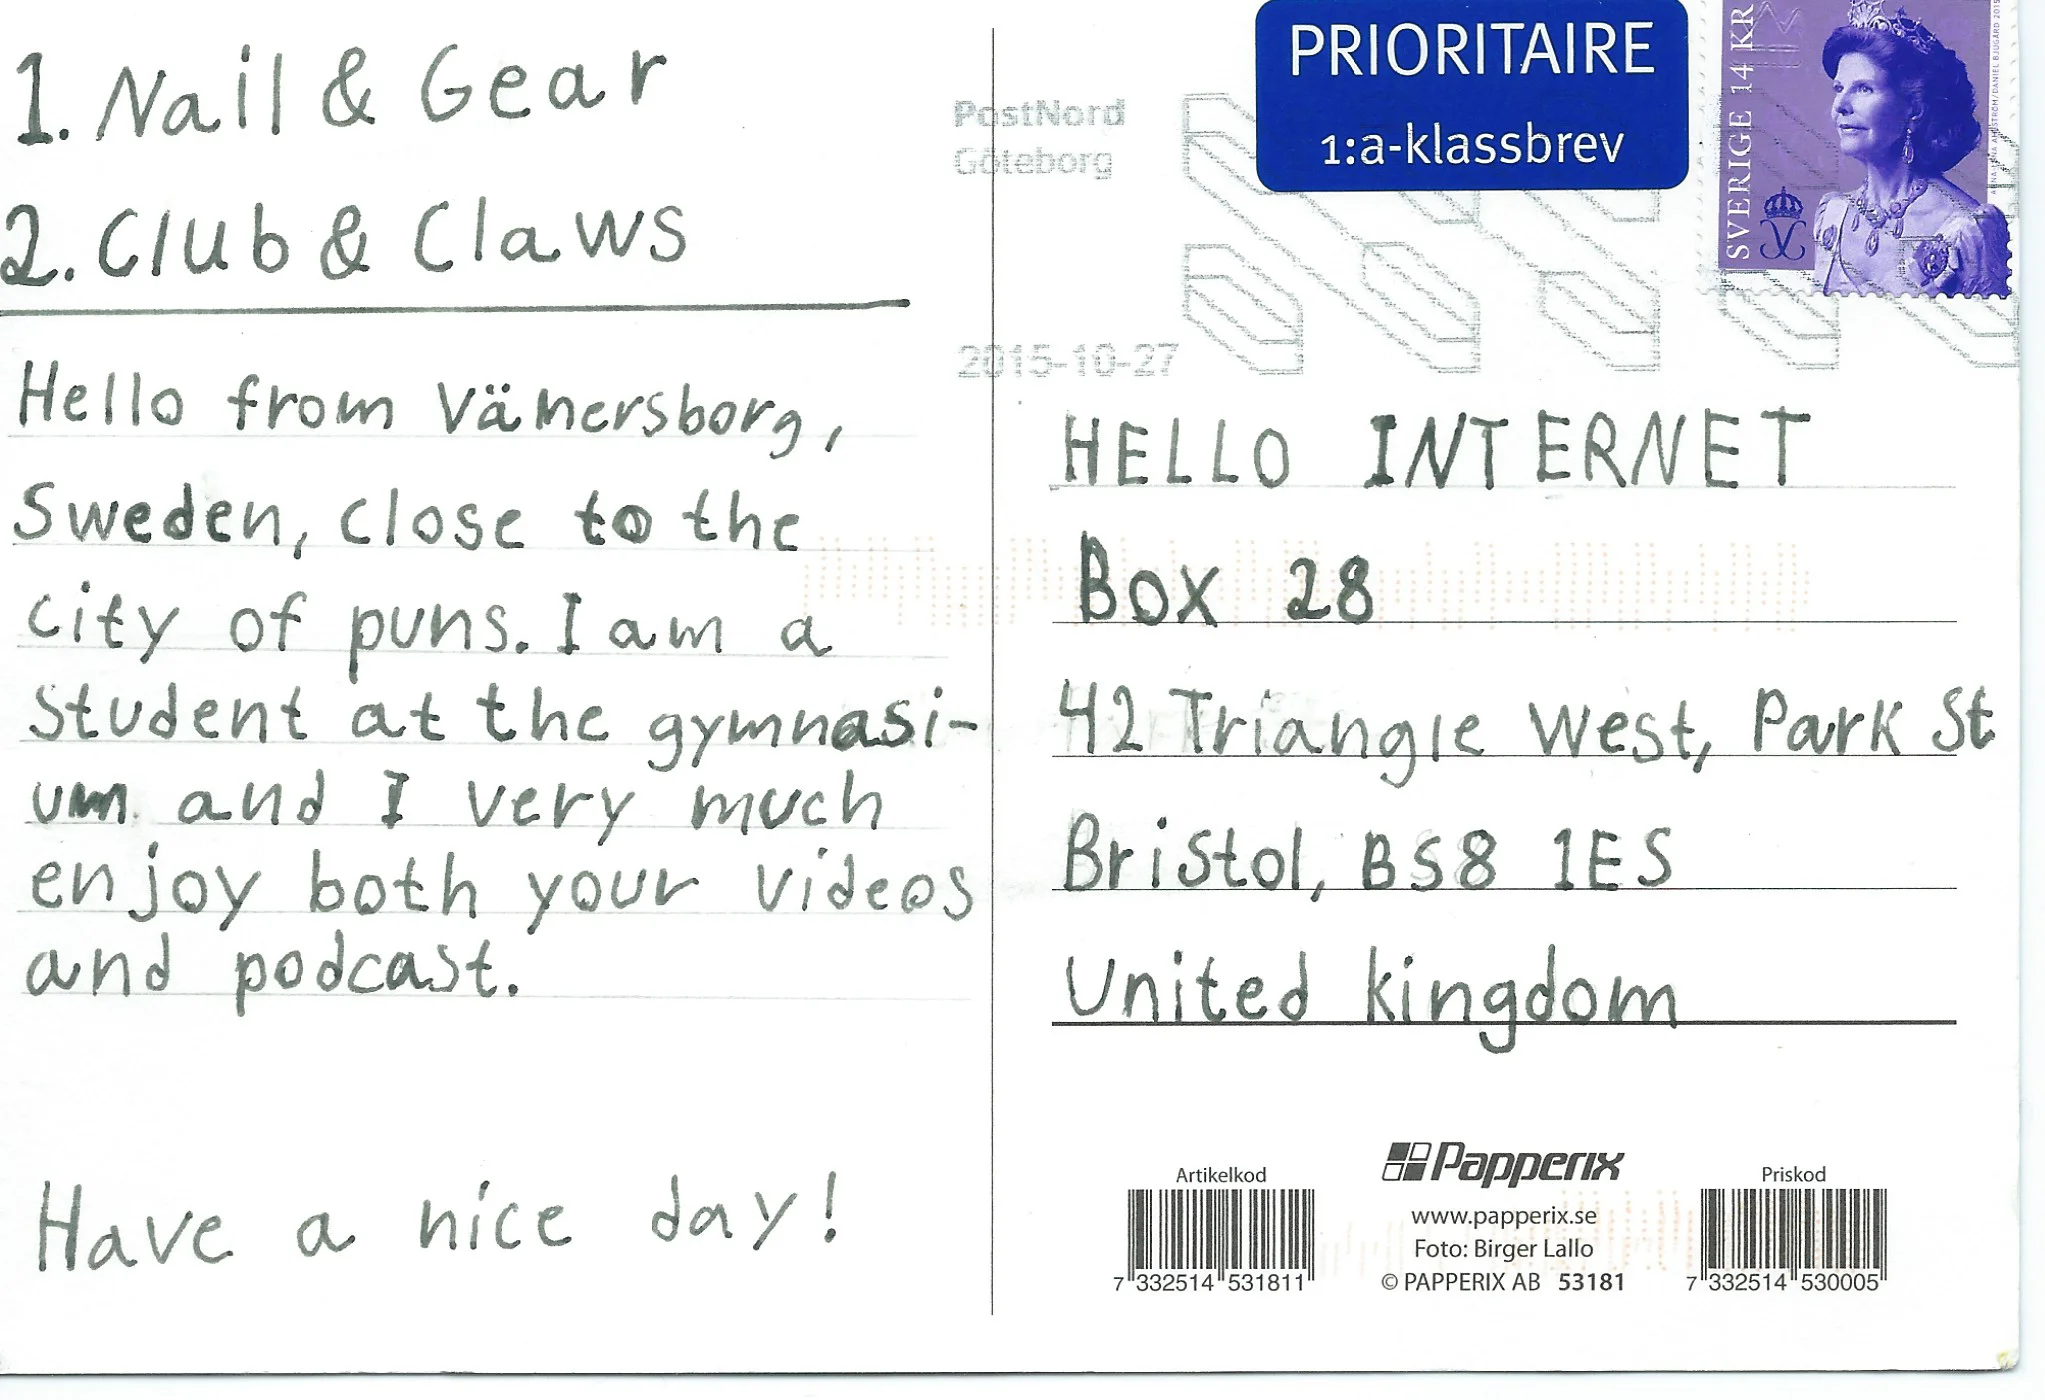 1. Nail & Gear
2. Club & Claws
Hello from Vänersborg,
Sweden, close to the
city of puns. I am a
student at the gymnasi-
um and I very much
enjoy both your videos
and podcast.
Have a nice day!
PostNord
Göteborg
2015-10-27
PRIORITAIRE
1:a-klassbrev
SVERIGE 14 KR
HELLO INTERNET
Box 28
42 Triangle West, Park St
Bristol, BS8 1ES
United kingdom
Artikelkod
7 332514 531811
Papperix
www.papperix.se
Foto: Birger Lallo
© PAPPERIX AB 53181
Priskod
7 332514 530005